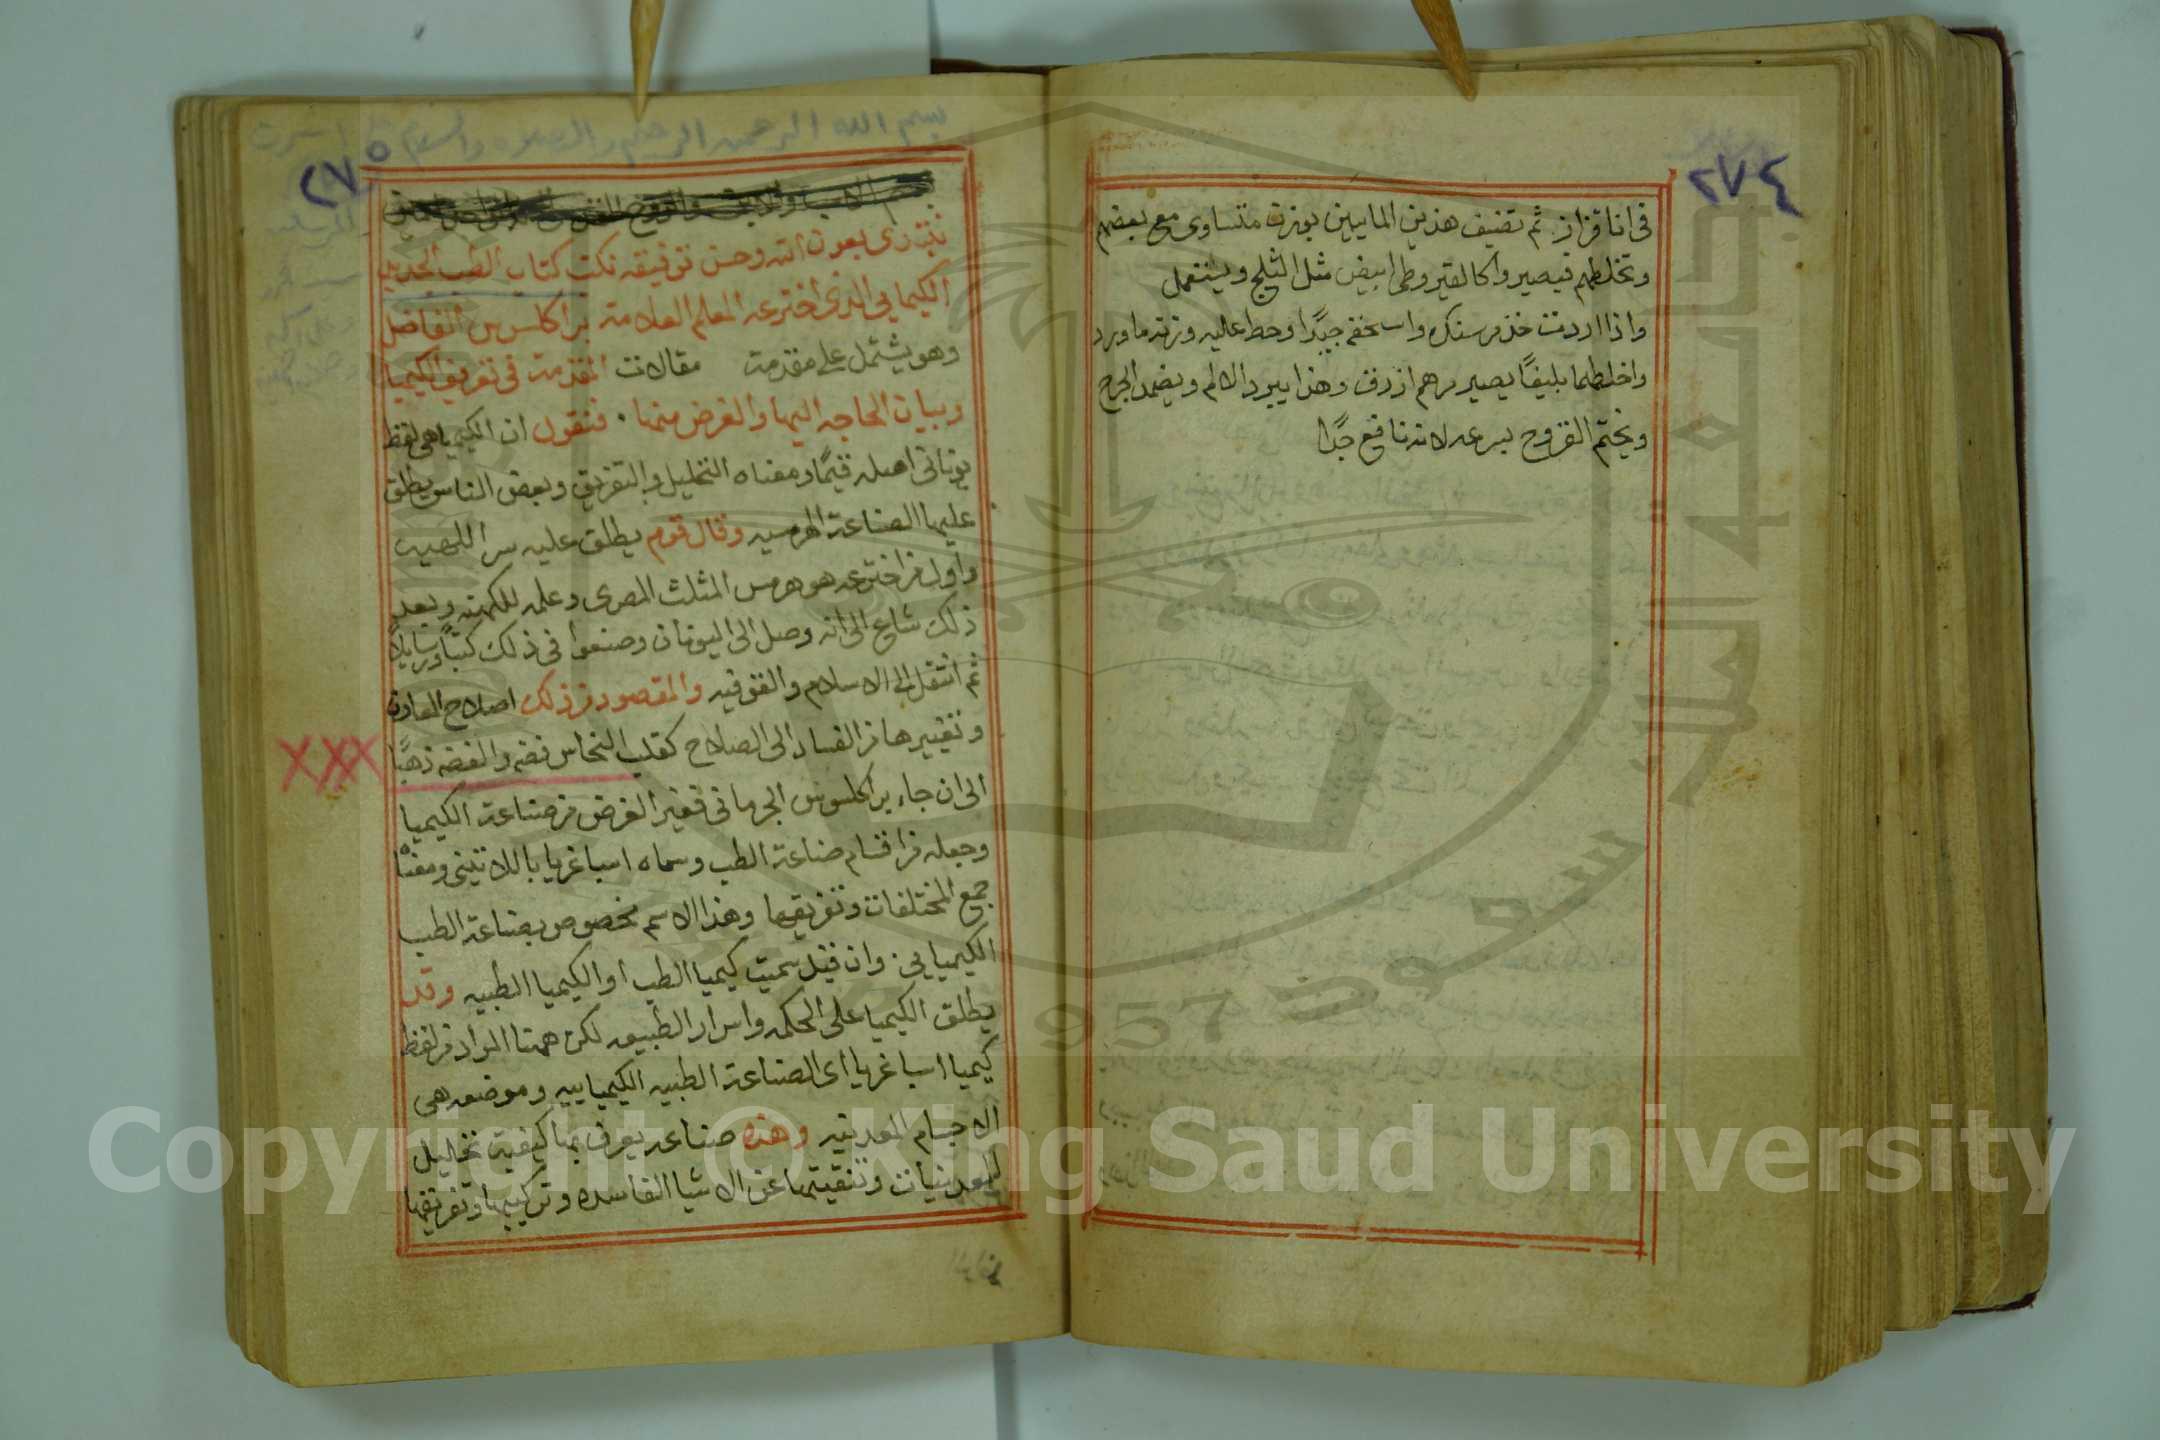 ٢٧٤
في انا قزاز. ثم تضيف هذين المايين بوزن متساوى مع بعضهم
وتخلطهم فيصيروا كالقيروطى ابيض مثل الثلج ويستعمل
واذا اردت خذ مرسنك واسحقه جيدًا وحط عليه وزنه ماورد
واخلطهما بليقًا يصير مرهم ازرق وهذا يبرد الالم ويضمد الجرح
ويختم القروح بسرعه لانه نافع جدًا
٢٧٥
بسم الله الرحمن الرحيم والصلاه والسلام على
نبتدى بعون الله وحسن توفيقه نكت كتاب الطب الجديد
الكيمايى الذى اخترعه المعلم العلامة براكلسوس الفاضل
وهو يشتمل على مقدمة مقالات المقدمة في تعريف الكيميا
وبيان الحاجه اليها والغرض منها. فنقول ان الكيميا هى لفظ
يونانى اصله قيمًا ومعناه التحليل والتفريق وبعض الناس يطلق
عليها الصناعة الهرمسيه وقال قوم يطلق عليه سر اللهيب
واول من اخترعه هو هرمس المثلث المصرى وعلمه للكهنه وبعد
ذلك شاع الى انه وصل الى اليونان وصنعوا في ذلك كتبًا ورسايلاً
ثم انتقل الى الاسلام والفوقيه والمقصود من ذلك اصلاح المعادن
وتغييرها من الفساد الى الصلاح كقلب النحاس فضه والفضه ذهبًا
الى ان جاء براكلسوس الجرمانى فغير الغرض من صناعة الكيميا
وجعله من اقسام صناعة الطب وسماه اسباغريا باللاتينى ومعناه
جمع المختلفات وتفريقها وهذا الاسم مخصوص بصناعة الطب
الكيميايى. وان قيل سميت كيميا الطب او الكيميا الطبيه وقد
يطلق الكيميا على الحكمه واسرار الطبيعه لكن ههنا المراد من لفظ
كيميا اسباغريا اى الصناعة الطبيه الكيميابيه وموضعه هى
الاجسام المعدنيه وهذه صناعه يعرف بها كيفيت تحاليل
المعدنيات وتنقيتها عن الاشيا الفاسده وتركيبها وتفريقها
Copyright © King Saud University
جامعة الملك سعود
1957